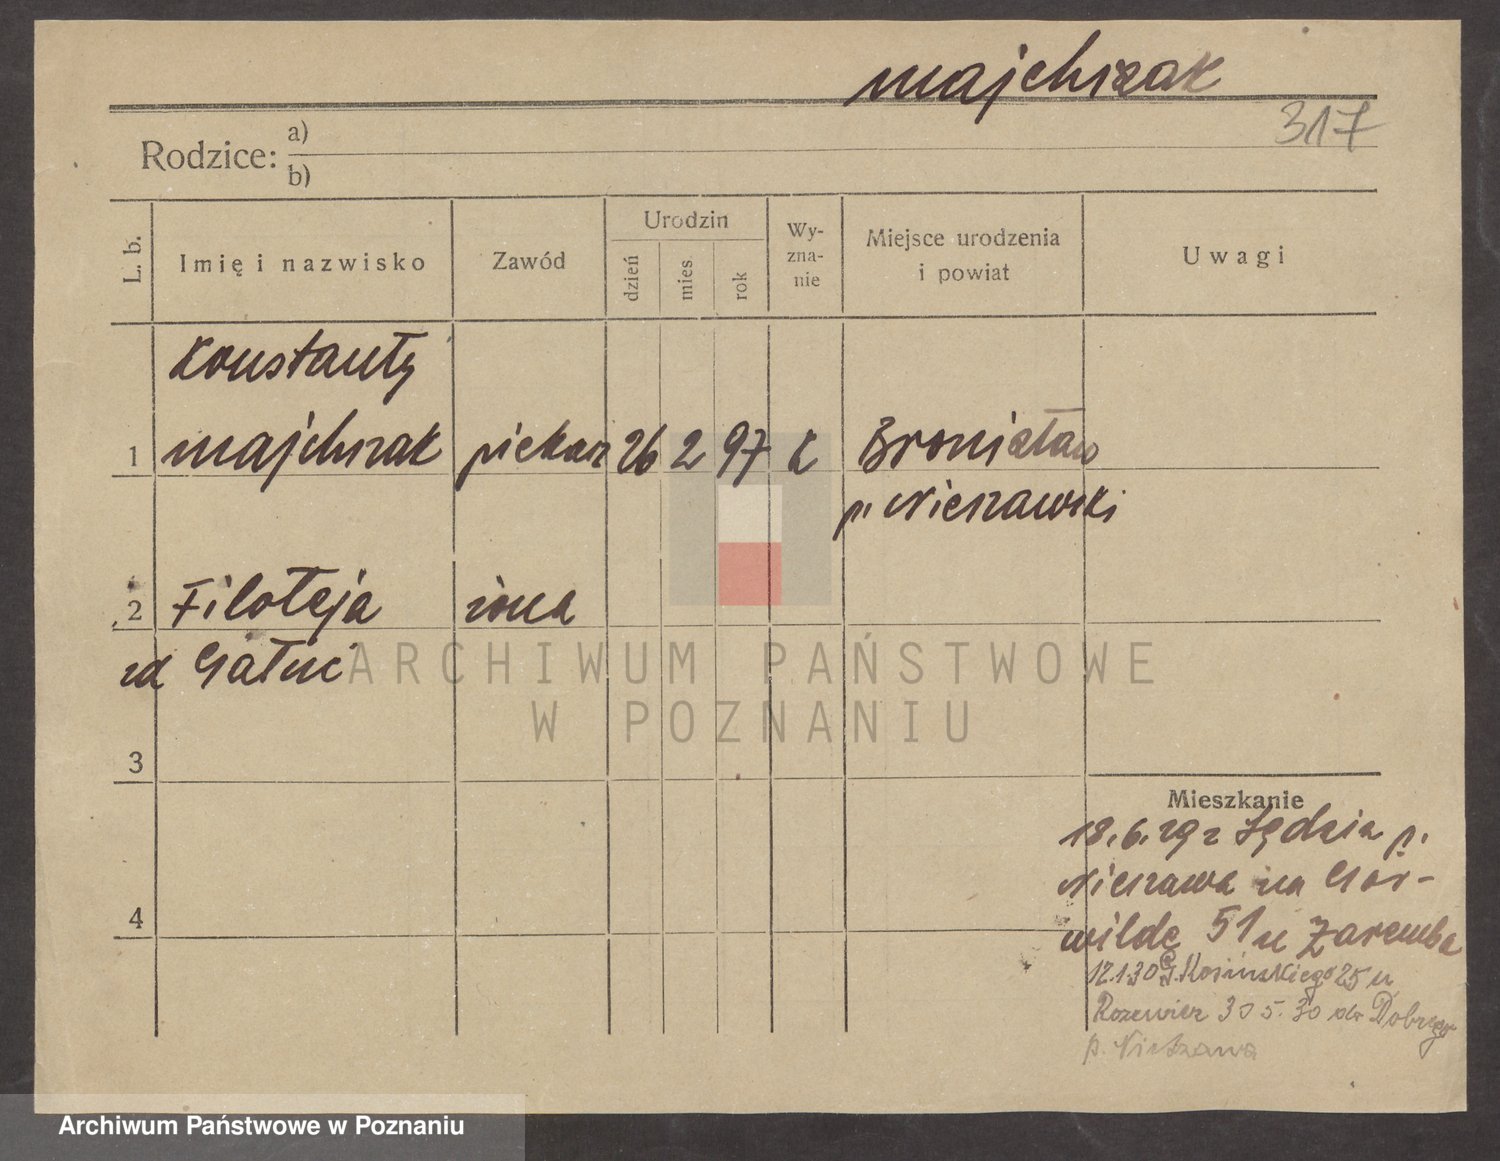 Majchrzak
317
Rodzice: a)
b)
L. b.
Imię i nazwisko
Zawód
Urodzin
dzień
mies
rok
Wy-
zna-
nie
Miejsce urodzenia
i powiat
Uwagi
Konstanty
1 Majchrzak piekarz 26 2 97 k Bronisław
p. Nieszawski
2 Filoteja żona
zd
3
4
Mieszkanie
18.6.29 z Sędzin p.
Nieszawa na Gór-
wildę 51 u Zaremba
12.1.30 G. Kosińskiego 25 u
Rozewicz 30 5. 30 do Dobrego
p. Nieszawa
ARCHIWUM PAŃSTWOWE
W POZNANIU
Archiwum Państwowe w Poznaniu